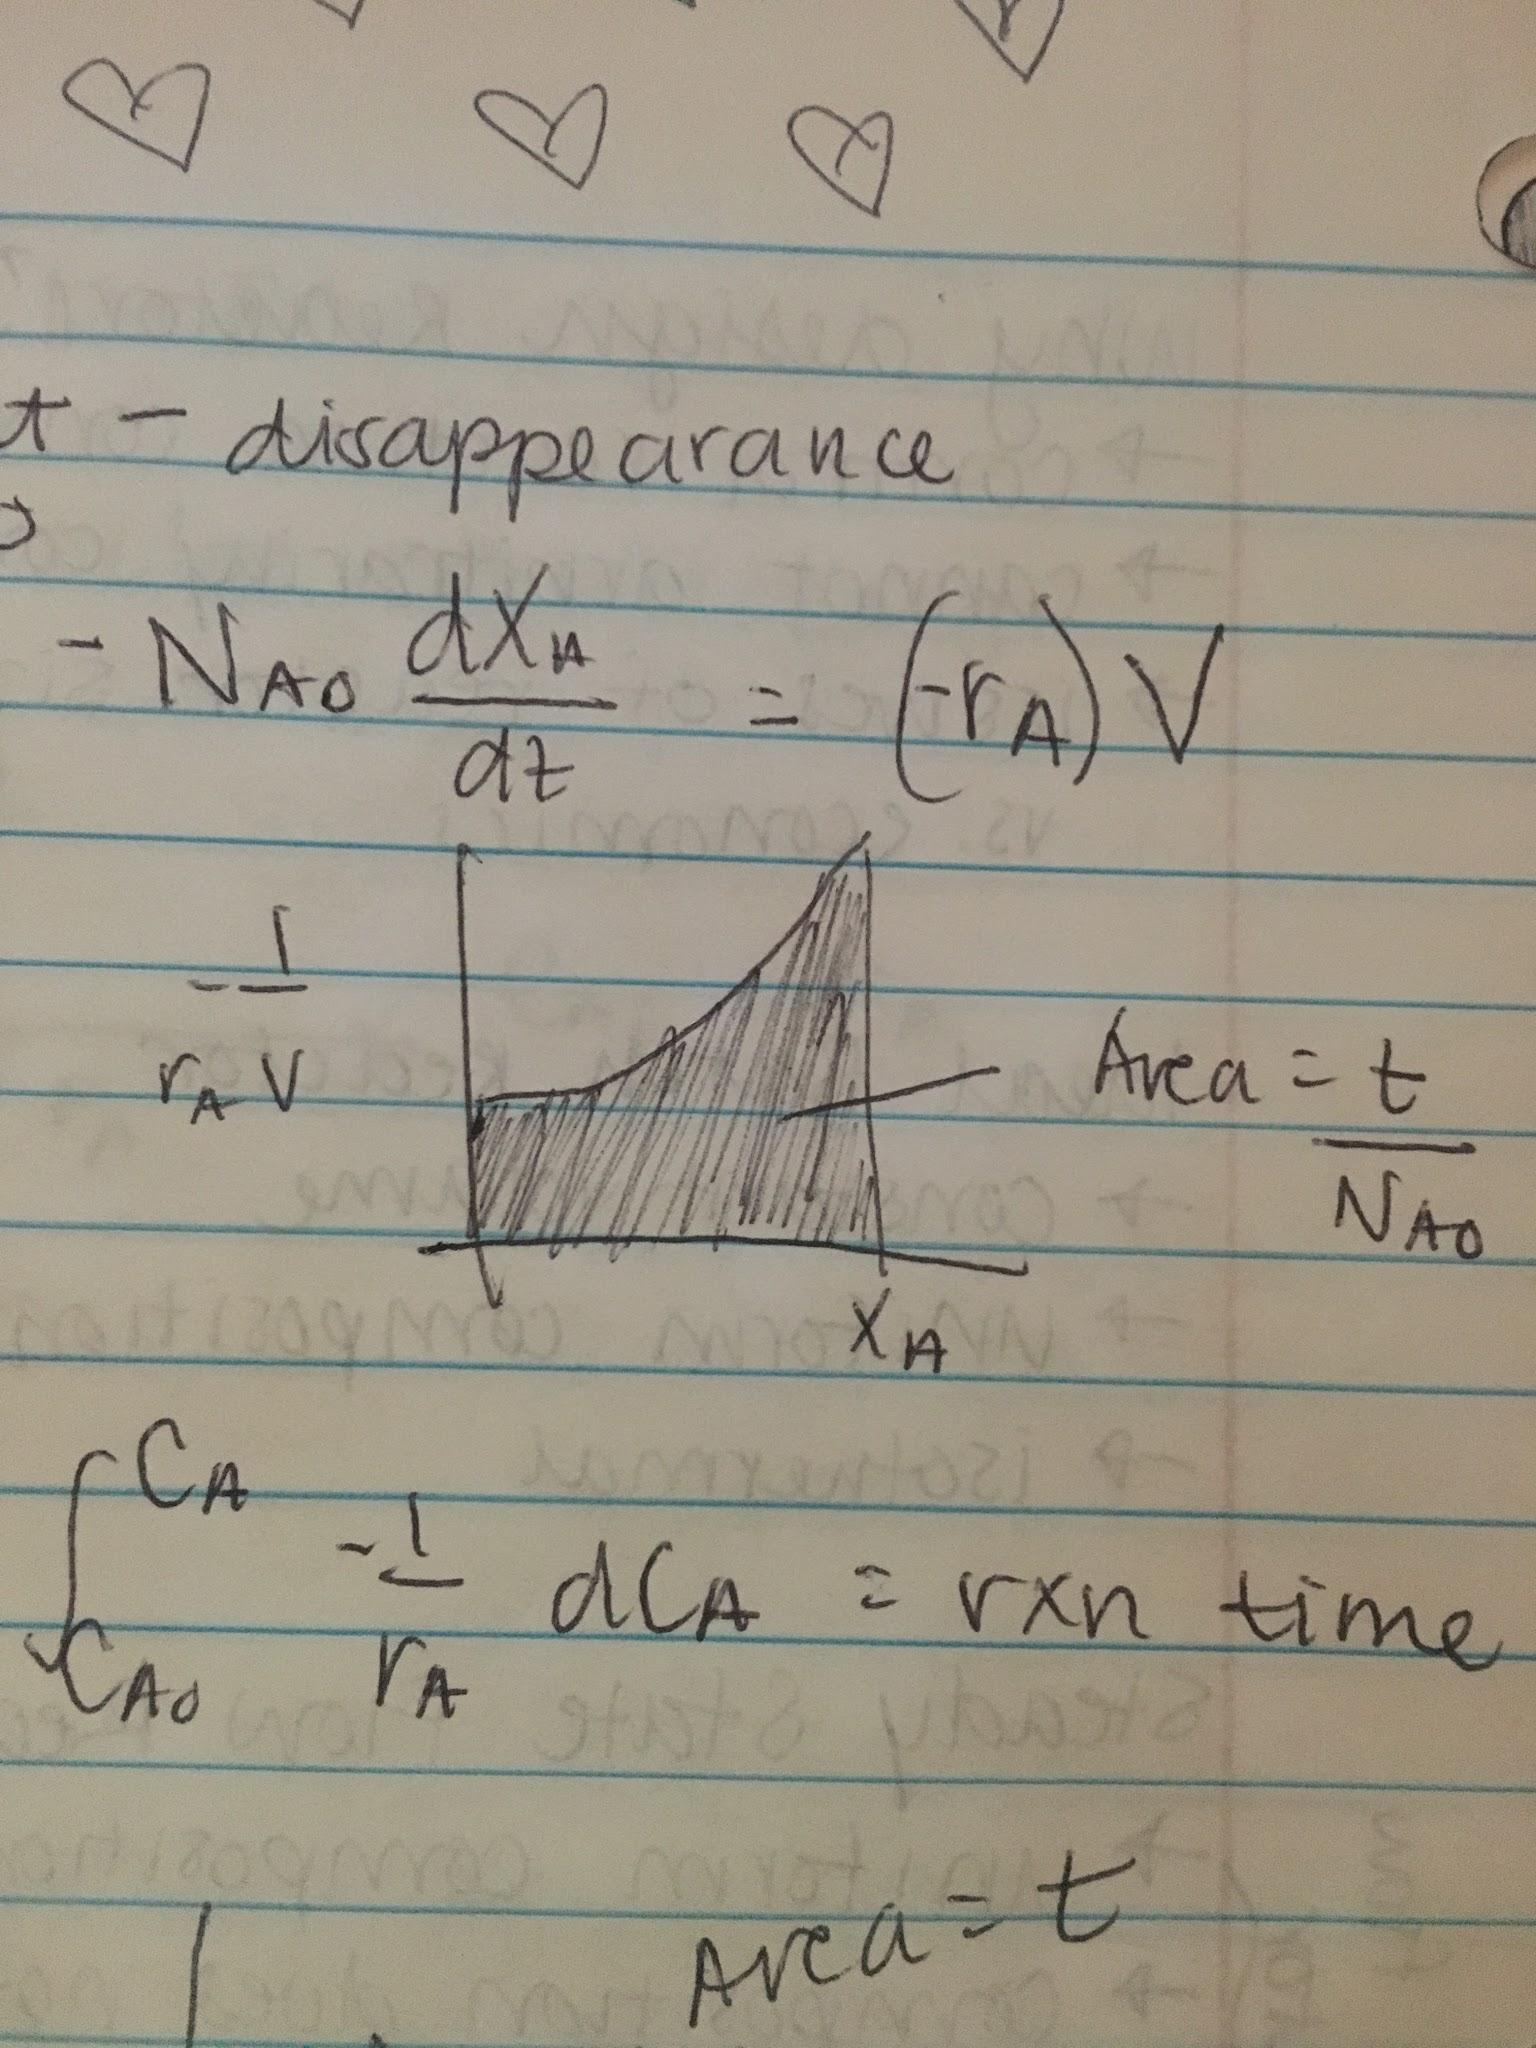 t - disappearance
- N_A0 dX_A/dt = (-r_A) V
- 1/r_A V
Area = t/N_A0
X_A
∫_C_A0^C_A - 1/r_A dC_A = rxn time
Area = t